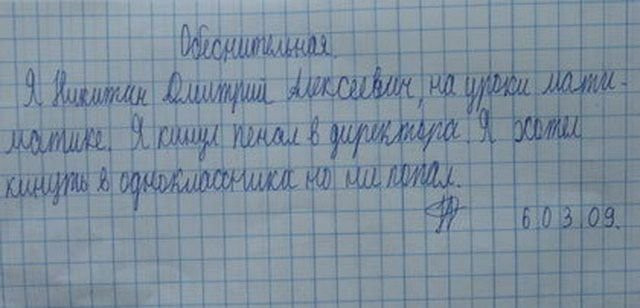 Обеснительная.
Я Никитан Дмитрий Алексеевич, на уроки мати-
матике. Я кинул пенал в директора. Я хотел
кинуть в одноклассника но ни попал.
6.03.09.